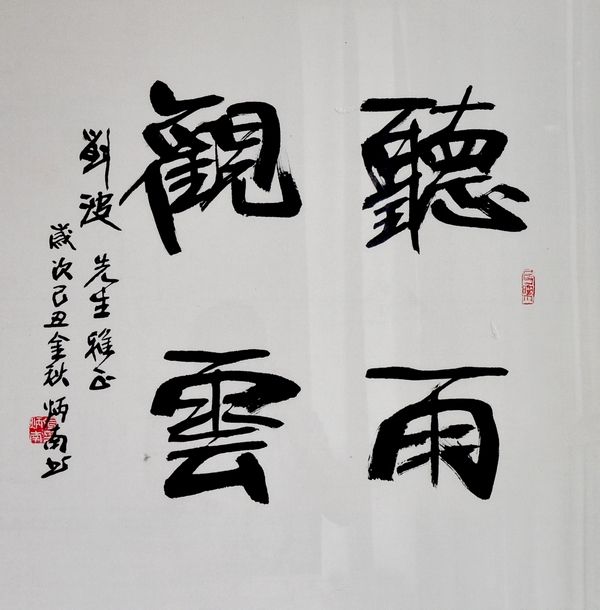 聽雨
觀雲
劉波先生雅正
歲次己丑金秋炳南书
炳南